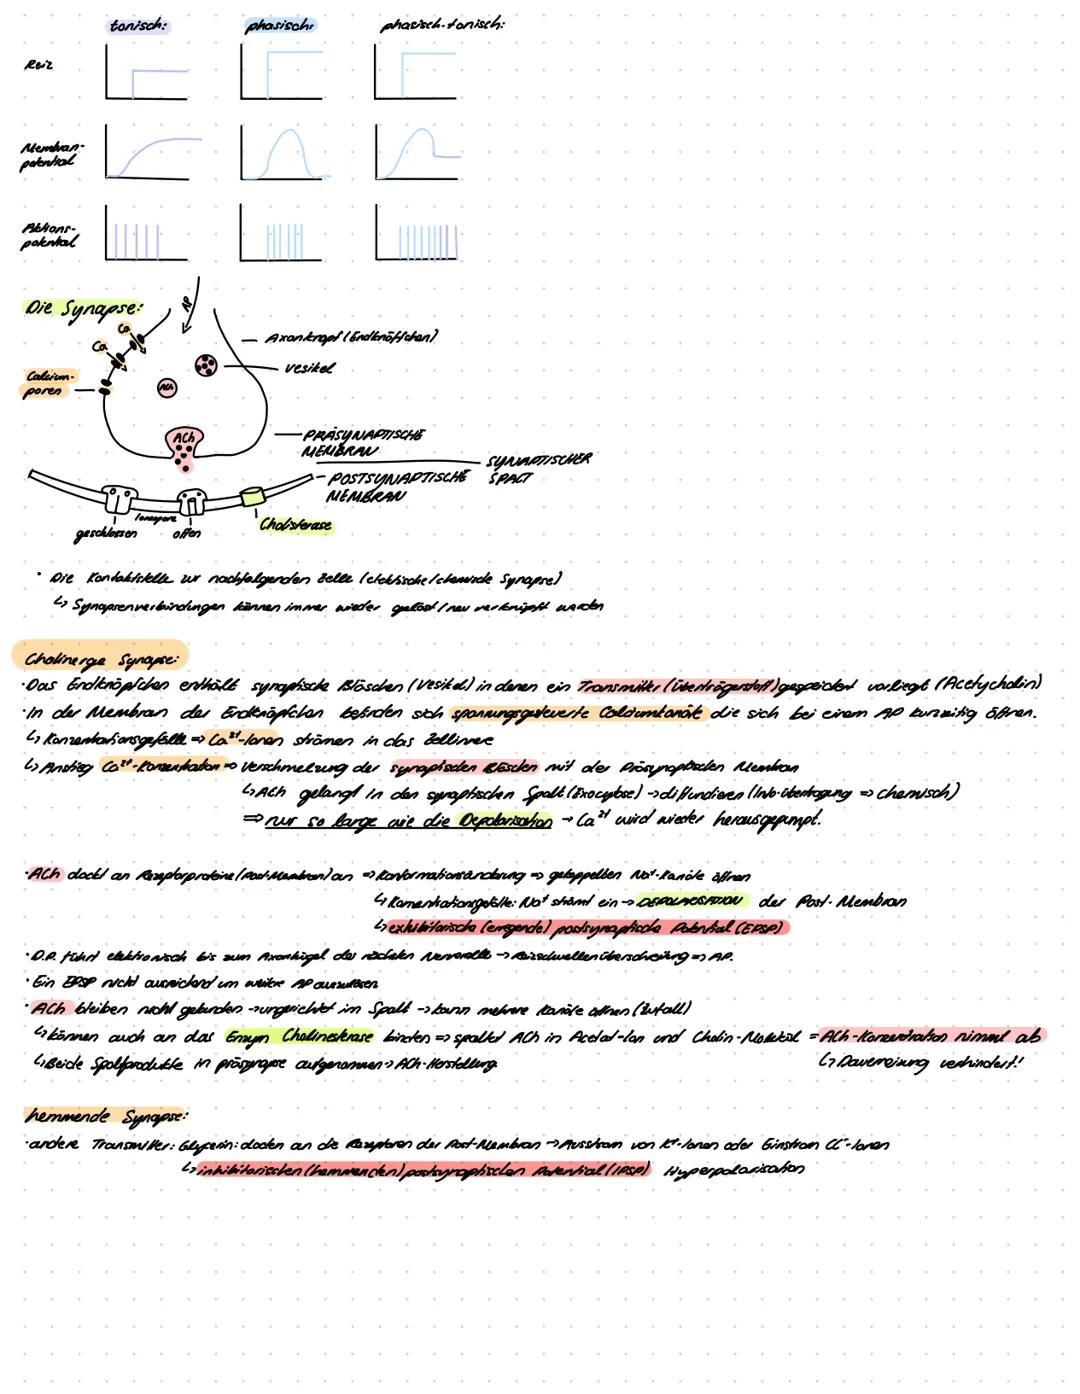 tonisch: phasisch: phasisch-tonisch:
Reiz
Membran-
potential
Aktions-
potential
Die Synapse:
AP
Ca
Ca
Axonkopf (Endknöpfchen)
Vesikel
Calcium-
poren
ACh
ACh
PRÄSYNAPTISCHE
MEMBRAN
SYNAPTISCHER
SPALT
POSTSYNAPTISCHE
MEMBRAN
Ionenpore
geschlossen offen
Cholisterase
· Die Kontaktstelle zur nachfolgenden Zelle (elektrische/chemische Synapse)
↳ Synapsenverbindungen können immer wieder gelöst/neu verknüpft werden
Cholinerge Synapse:
· Das Endknöpfchen enthält synaptische Bläschen (Vesikel) in denen ein Transmitter (Überträgerstoff) gespeichert vorliegt (Acetycholin)
· In der Membran der Endknöpfchen befinden sich spannungsgesteuerte Calciumkanäle die sich bei einem AP kurzzeitig öffnen.
↳ Konzentrationsgefälle ⇒ Ca²⁺-Ionen strömen in das Zellinnere
↳ Anstieg Ca²⁺-Konzentration ⇒ Verschmelzung der synaptischen Bläschen mit der Präsynaptischen Membran
↳ ACh gelangt in den synaptischen Spalt (Exocytose) → diffundieren (Info-Übertragung ⇒ Chemisch)
⇒ nur so lange wie die Depolarisation → Ca²⁺ wird wieder herausgepumpt.
· ACh dockt an Rezeptorproteine (Post-Membran) an ⇒ Konformationsänderung ⇒ gekoppelten Na⁺-Kanäle öffnen
↳ Konzentrationsgefälle: Na⁺ strömt ein → DEPOLARISATION der Post-Membran
↳ exhibitorische (erregende) postsynaptische Potential (EPSP)
· D.P. führt elektronisch bis zum Axonhügel der nächsten Nervenzelle → Reizschwellenüberschreitung ⇒ AP.
· Ein EPSP nicht ausreichend um weitere AP auszulösen
· ACh bleiben nicht gebunden → ungerichtet im Spalt → kann mehrere Kanäle öffnen (Zufall)
↳ können auch an das Enzym Cholinesterase binden ⇒ spaltet ACh in Acetat-Ion und Cholin-Molekül = ACh-Konzentration nimmt ab
↳ Beide Spaltprodukte in präsynapse aufgenommen → ACh-Herstellung
↳ Dauerreizung verhindert!
hemmende Synapse:
· andere Transmitter: Glycerin: docken an die Rezeptoren der Post-Membran → Ausstrom von K⁺-Ionen oder Einstrom Cl⁻-Ionen
↳ inhibitorischen (hemmenden) postsynaptischen Potential (IPSP) Hyperpolarisation